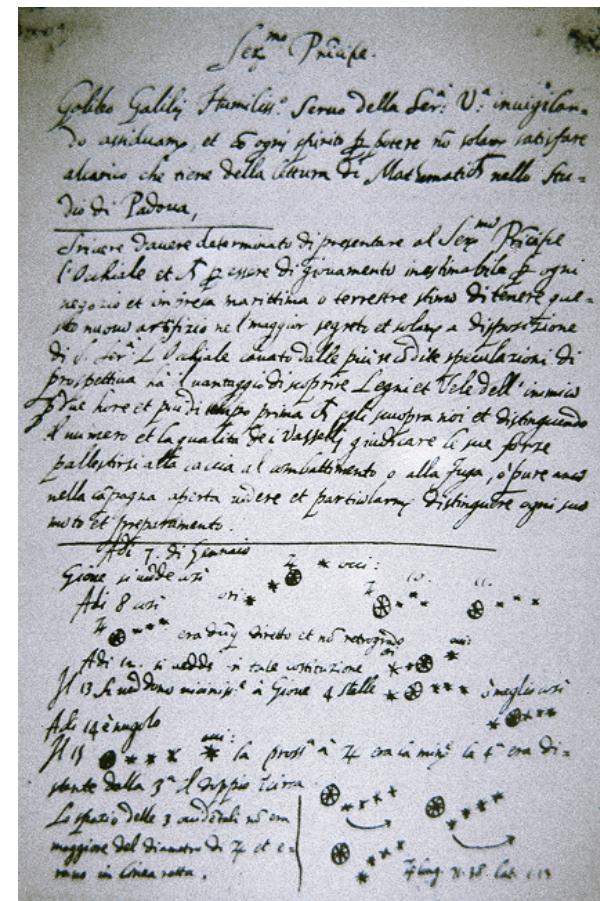 Ser.mo Prīcipe.
Galileo Galilei Humiliss.o Servo della Ser.a V.a invigilan-
do assiduam.e, et cō ogni spirito p potere nō solam.e satisfare
alcarico che tiene della lettura di Mathematica nello Stu-
dio di Padova,
Scrivere d'havere determinato di presentare al Ser.mo Prīcipe
l'Occhiale et p essere di giovamento inestimabile p ogni
negozio et impresa marittima o terrestre stimo di tenere que-
sto nuovo artifizio nel maggior segreto et solam.e a disposizione
di S. Ser.a L'Occhiale cavato dalle più recōdite speculazioni di
prospettiva ha il vantaggio di scoprire Legni et Vele dell'inimico
p due hore et più di tempo prima egli scuopra noi et distinguendo
il numero et la qualità dei Vasselli giudicare le sue forze
pallestirsi alla caccia al combattimento o alla fuga, o pure anco
nella cāpagna aperta vedere et particolarm.e distinguere ogni suo
moto et preparamento.
Adi 7. di Gennaio
Gione si vede così occi:
Adi 8 così ori: 10. 11.
♃ era dūq diretto et nō retrogrado
Adi 12. si vedde in tale costituzione ori occi:
Il 13 si veddono vicinis.e à Giove 4 stelle ò meglio così
Adi 14 è nugolo
Il 15 occi: la pross.a à ♃ era la min.e la 4.a era di-
stante dalla 3.a il doppio incirca
Lo spazio delle 3 occidētali nō era
maggiore del diametro di ♃ et e-
rano in linea retta.
♃ long. 71.38 Lat. 1.13